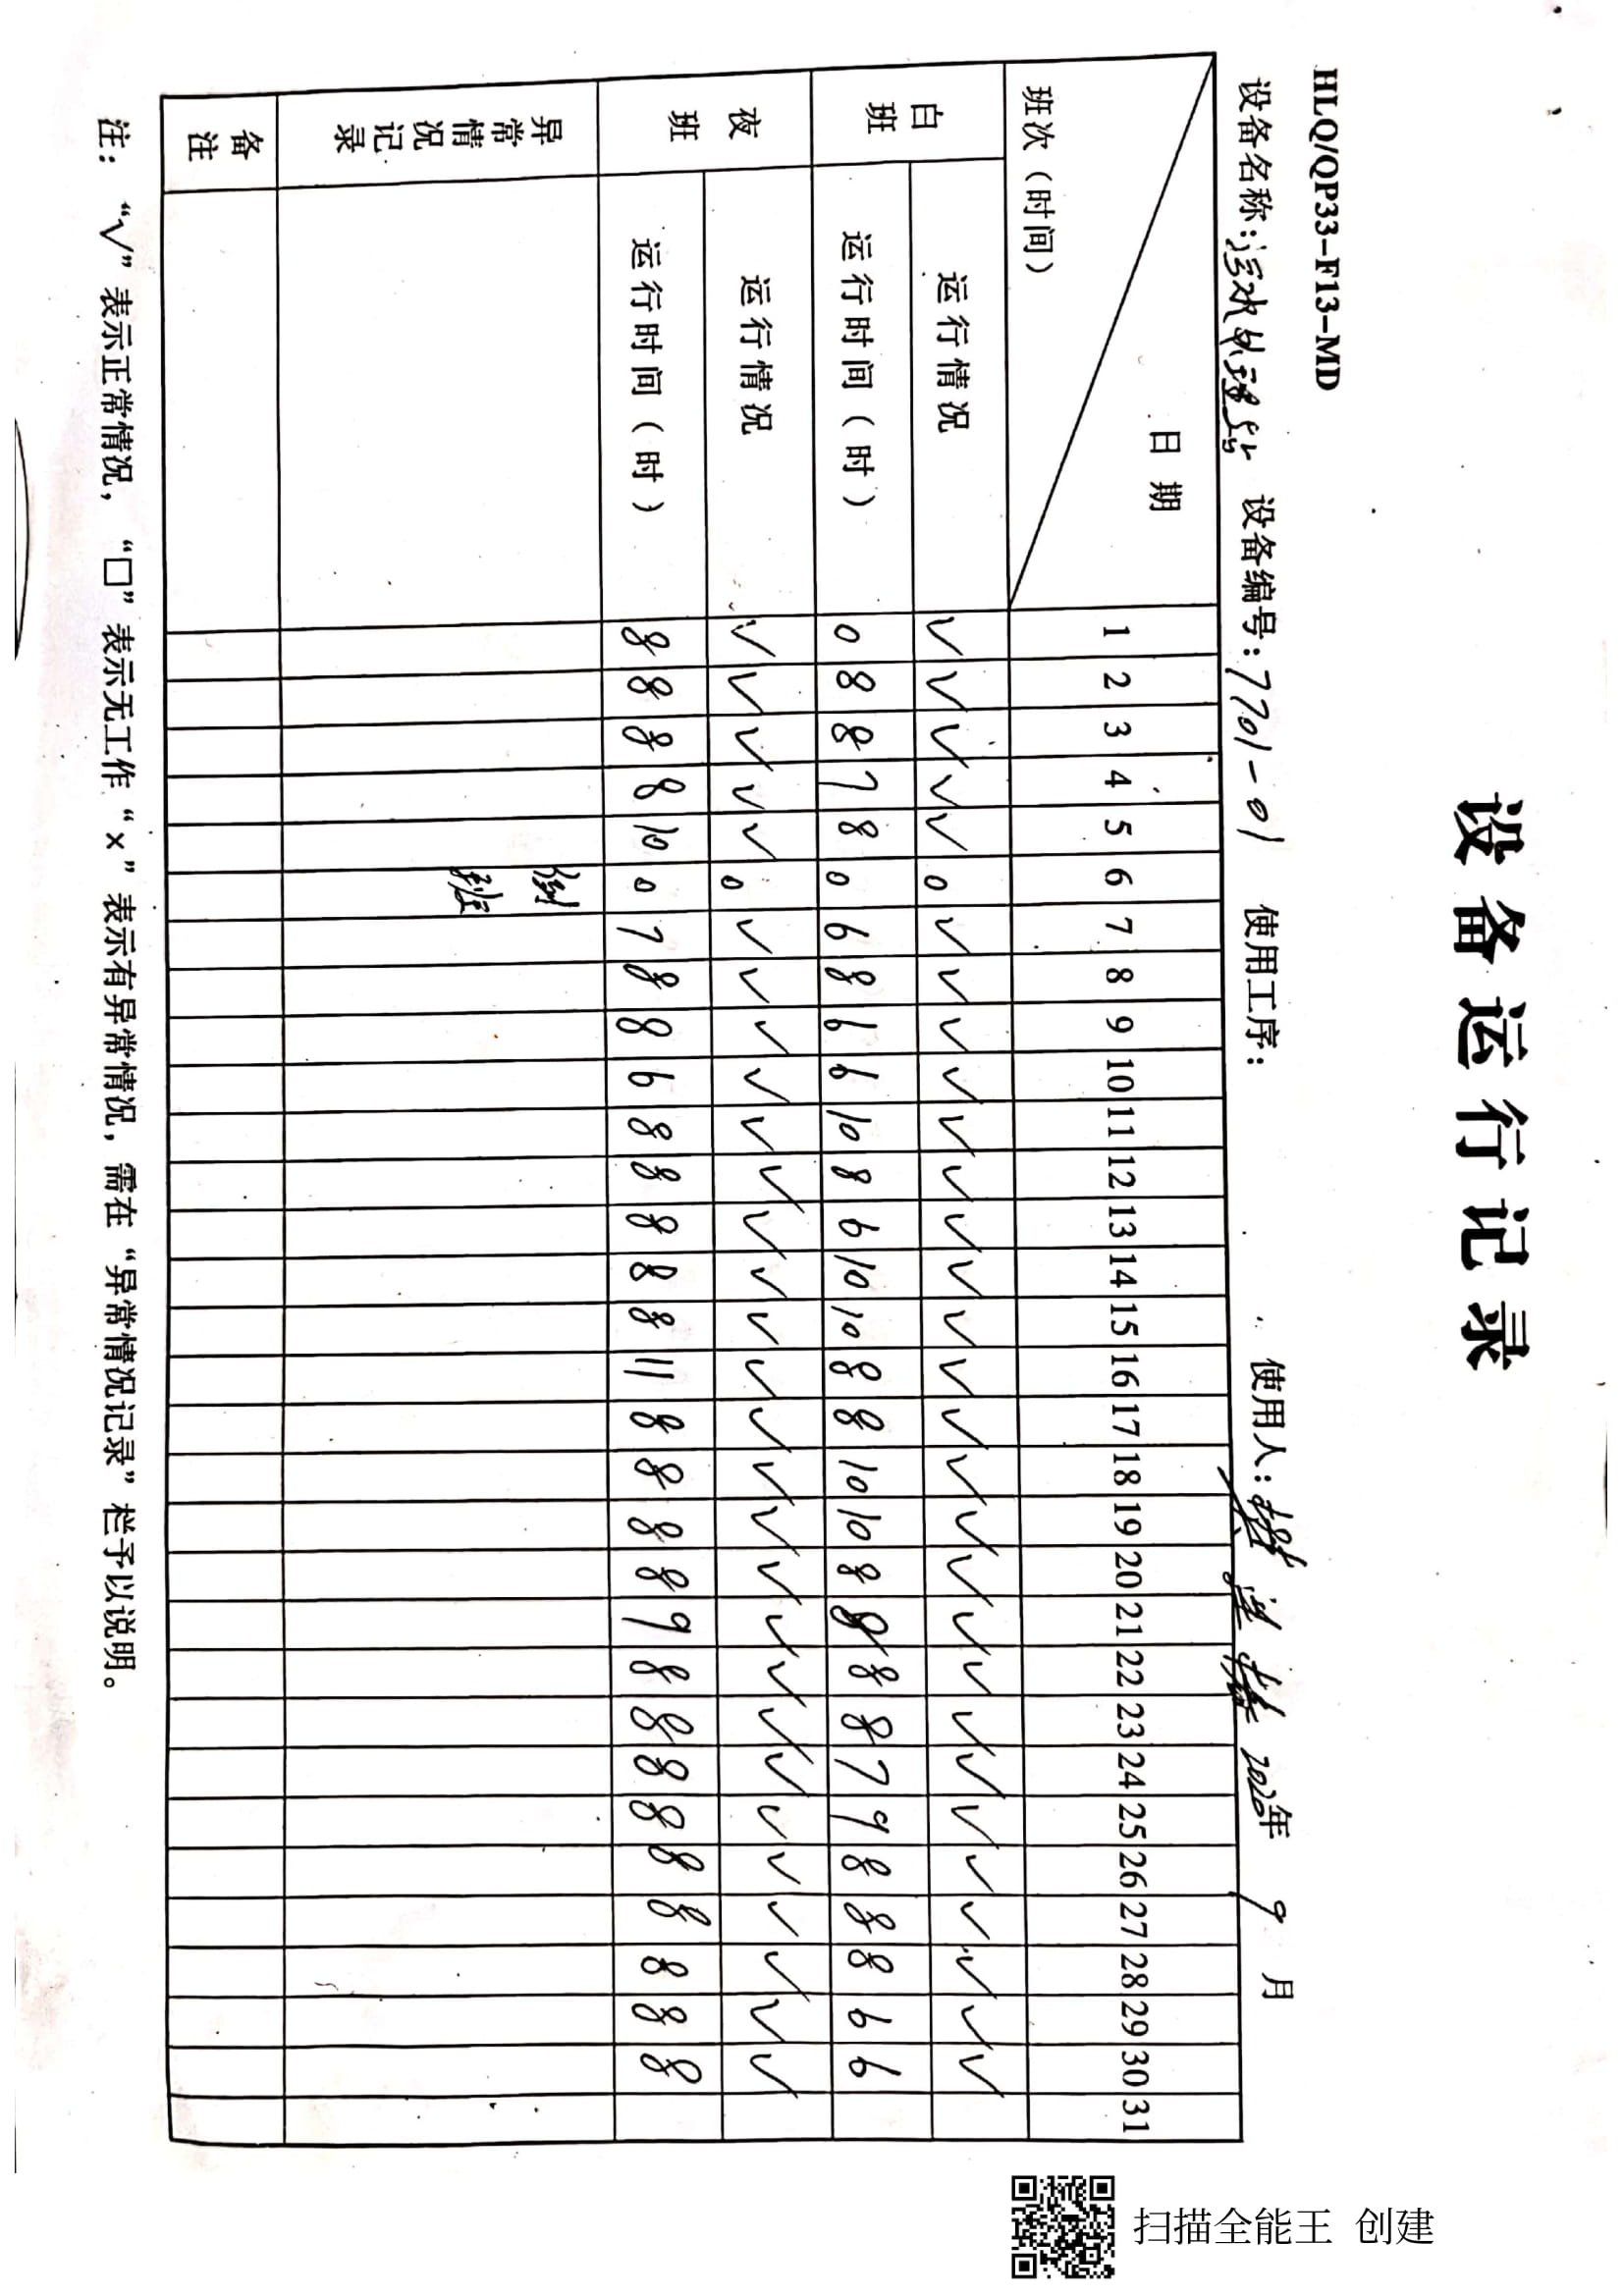 设备运行记录
HLQ/QP33-F13-MD
设备名称：污水处理站 设备编号：7701-01 使用工序： 使用人： 2020年 9 月
日 期 1 2 3 4 5 6 7 8 9 10 11 12 13 14 15 16 17 18 19 20 21 22 23 24 25 26 27 28 29 30 31
班次（时间）
白班 运行情况 √ √ √ √ √ 0 √ √ √ √ √ √ √ √ √ √ √ √ √ √ √ √ √ √ √ √ √ √ √ √
运行时间（时） 0 8 8 7 8 0 6 8 6 6 10 8 6 10 10 8 8 10 10 8 8 8 8 7 9 8 8 8 6 6
夜班 运行情况 √ √ √ √ √ 0 √ √ √ √ √ √ √ √ √ √ √ √ √ √ √ √ √ √ √ √ √ √ √ √
运行时间（时） 8 8 8 8 10 0 7 8 8 6 8 8 8 8 8 11 8 8 8 8 9 8 8 8 8 8 8 8 8 8
异常情况记录 倒班
备注
注： “√”表示正常情况， “□”表示无工作“×”表示有异常情况，需在“异常情况记录”栏予以说明。
扫描全能王 创建